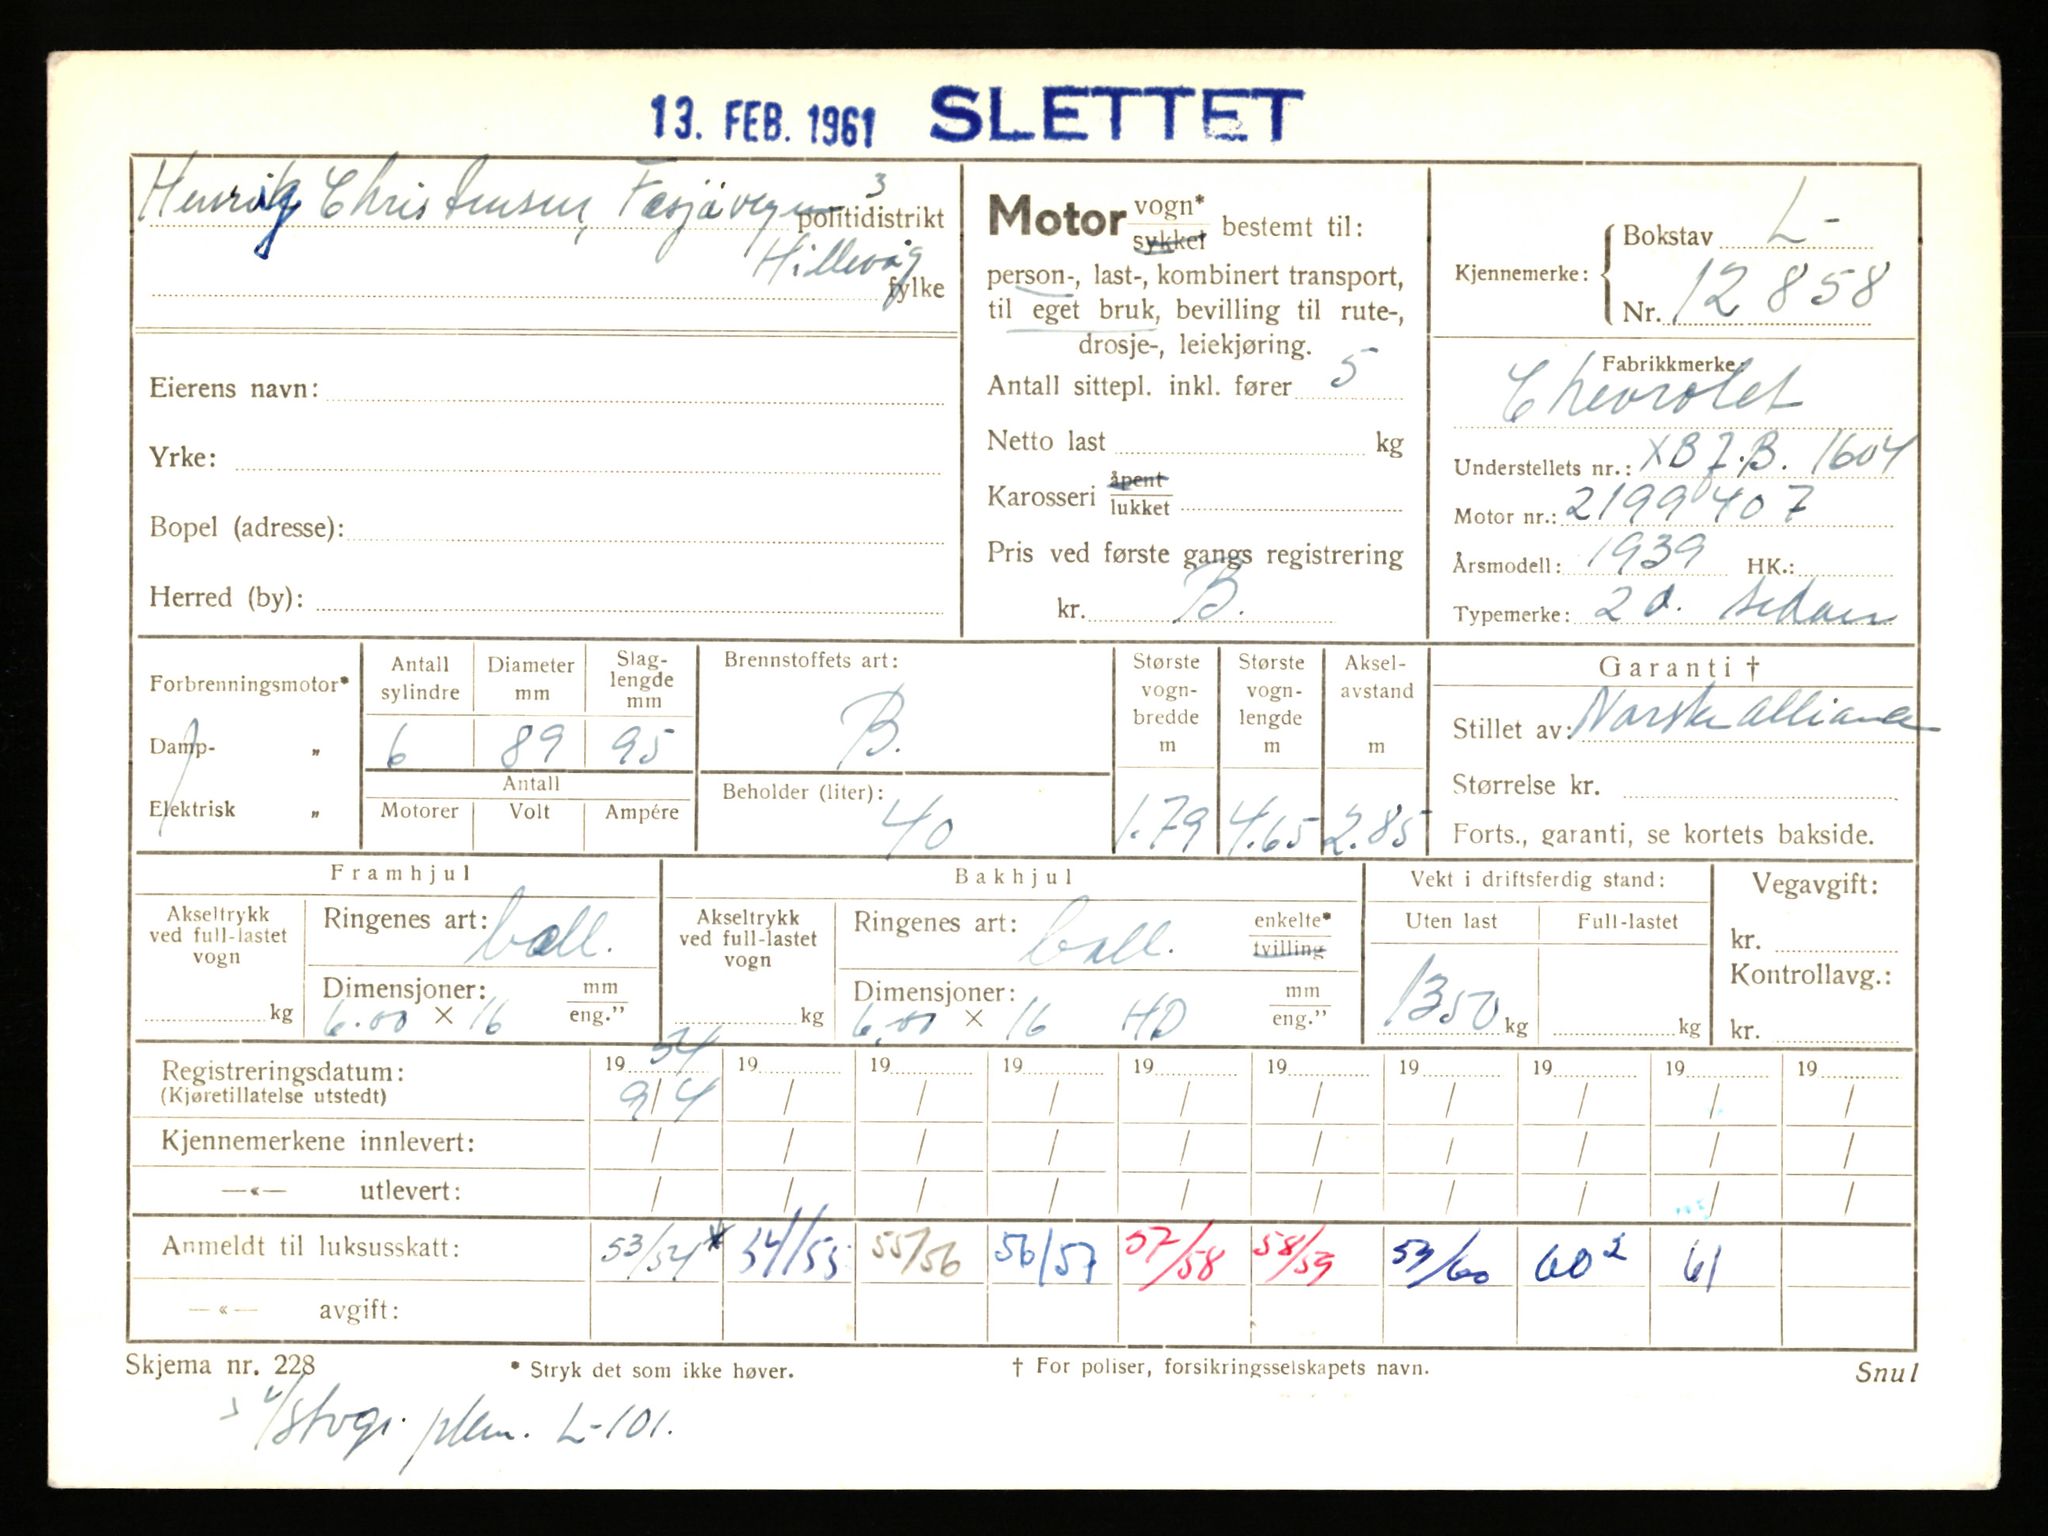 13. FEB. 1961 SLETTET
Henrik Christensen, 3
politidistrikt
Hillevåg
fylke
Eierens navn:
Yrke:
Bopel (adresse):
Herred (by):
Motor vogn* sykkel bestemt til:
person-, last-, kombinert transport,
til eget bruk, bevilling til rute-,
drosje-, leiekjøring.
Antall sittepl. inkl. fører 5
Netto last kg
Karosseri åpent lukket
Pris ved første gangs registrering
kr. B.
Kjennemerke: Bokstav L-
Nr. 12858
Fabrikkmerke:
Chevrolet
Understellets nr.: XB7.B. 1604
Motor nr.: 2199407
Årsmodell: 1939 HK.:
Typemerke: 2 d. sedan
Forbrenningsmotor*
Damp- „
Elektrisk „
Antall sylindre Diameter mm Slaglengde mm
6 89 95
Antall
Motorer Volt Ampére
Brennstoffets art:
B.
Beholder (liter):
40
Største vognbredde m Største vognlengde m Akselavstand m
1.79 4.65 2.85
Garanti †
Stillet av: Norske alliance
Størrelse kr.
Forts., garanti, se kortets bakside.
Framhjul
Akseltrykk ved full-lastet vogn
kg
Ringenes art: ball.
Dimensjoner: mm eng.”
6.00 × 16
Bakhjul
Akseltrykk ved full-lastet vogn
kg
Ringenes art: ball. enkelte* tvilling
Dimensjoner: mm eng.”
6.00 × 16 HD
Vekt i driftsferdig stand:
Uten last Full-lastet
1350 kg kg
Vegavgift:
kr.
Kontrollavg.:
kr.
Registreringsdatum: 19 54 19 19 19 19 19 19 19 19 19
(Kjøretillatelse utstedt) 9/4 / / / / / / / / /
Kjennemerkene innlevert: / / / / / / / / / /
—«— utlevert: / / / / / / / / / /
Anmeldt til luksusskatt: 53/54* 54/55 55/56 56/57 57/58 58/59 59/60 60² 61
—«— avgift:
Skjema nr. 228 * Stryk det som ikke høver. † For poliser, forsikringsselskapets navn. Snul
L-101.